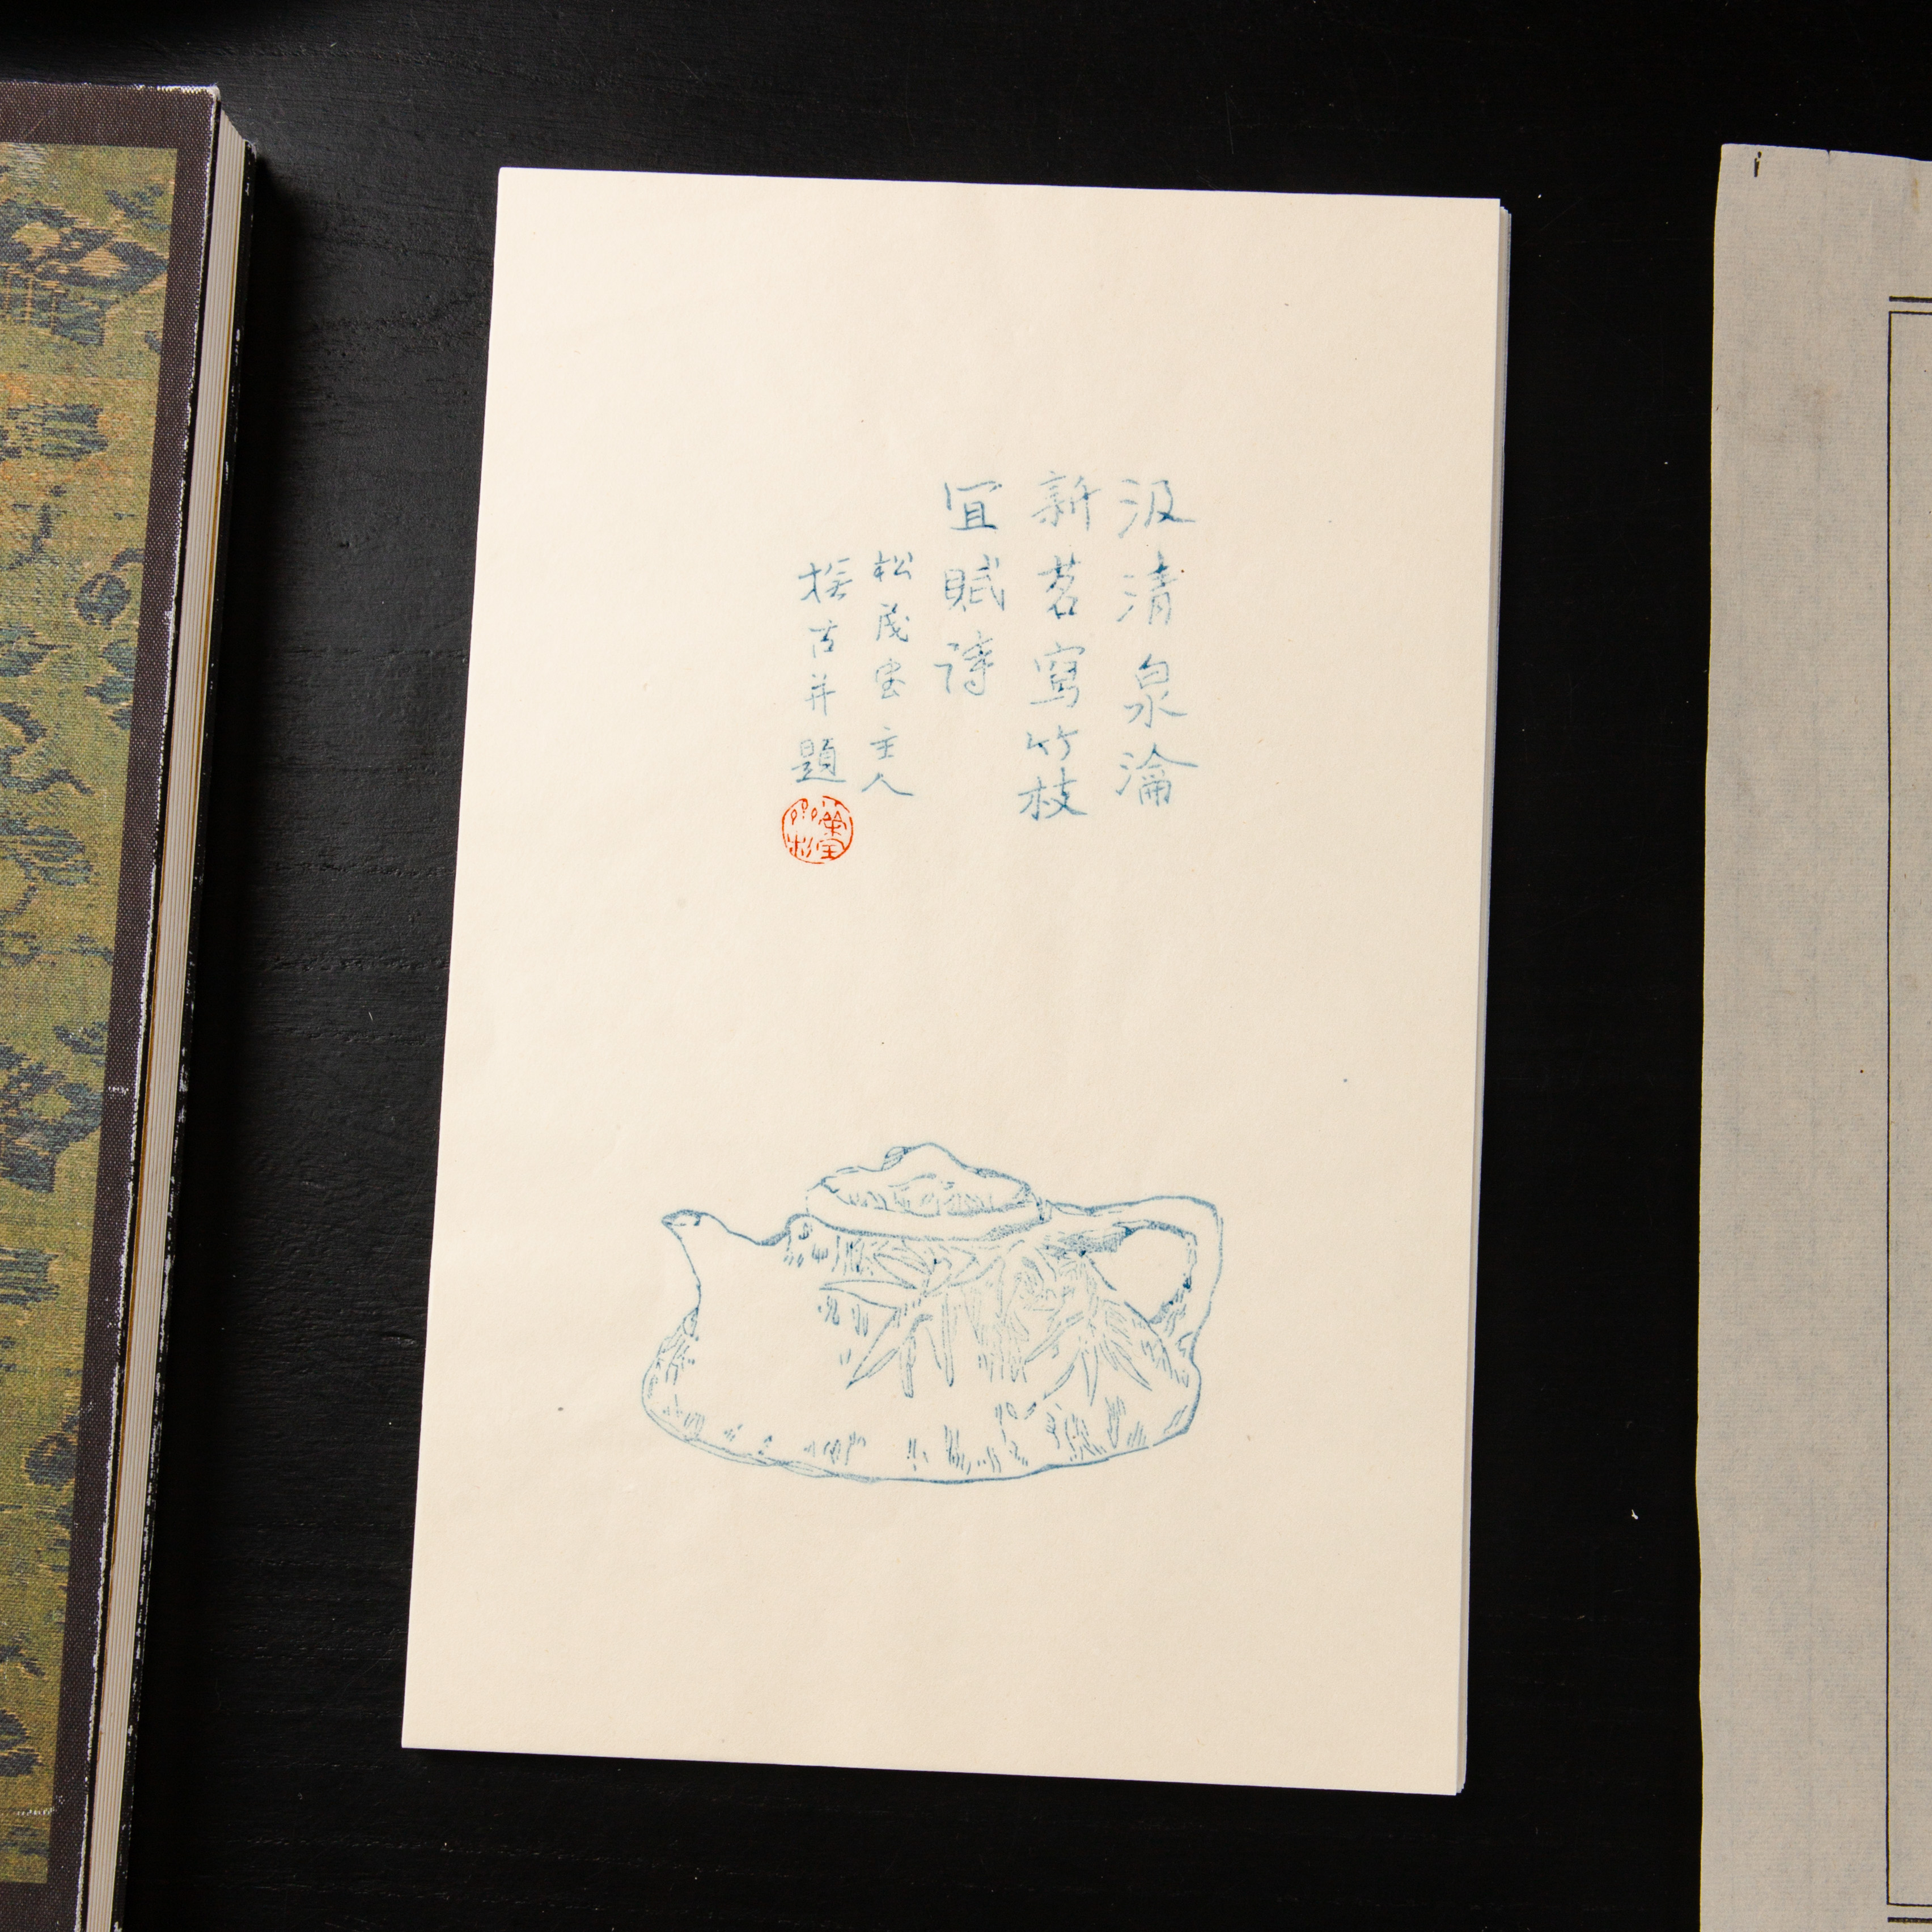 汲清泉瀹
新茗寫竹枝
宜賦詩
松茂室主人
撫古并題